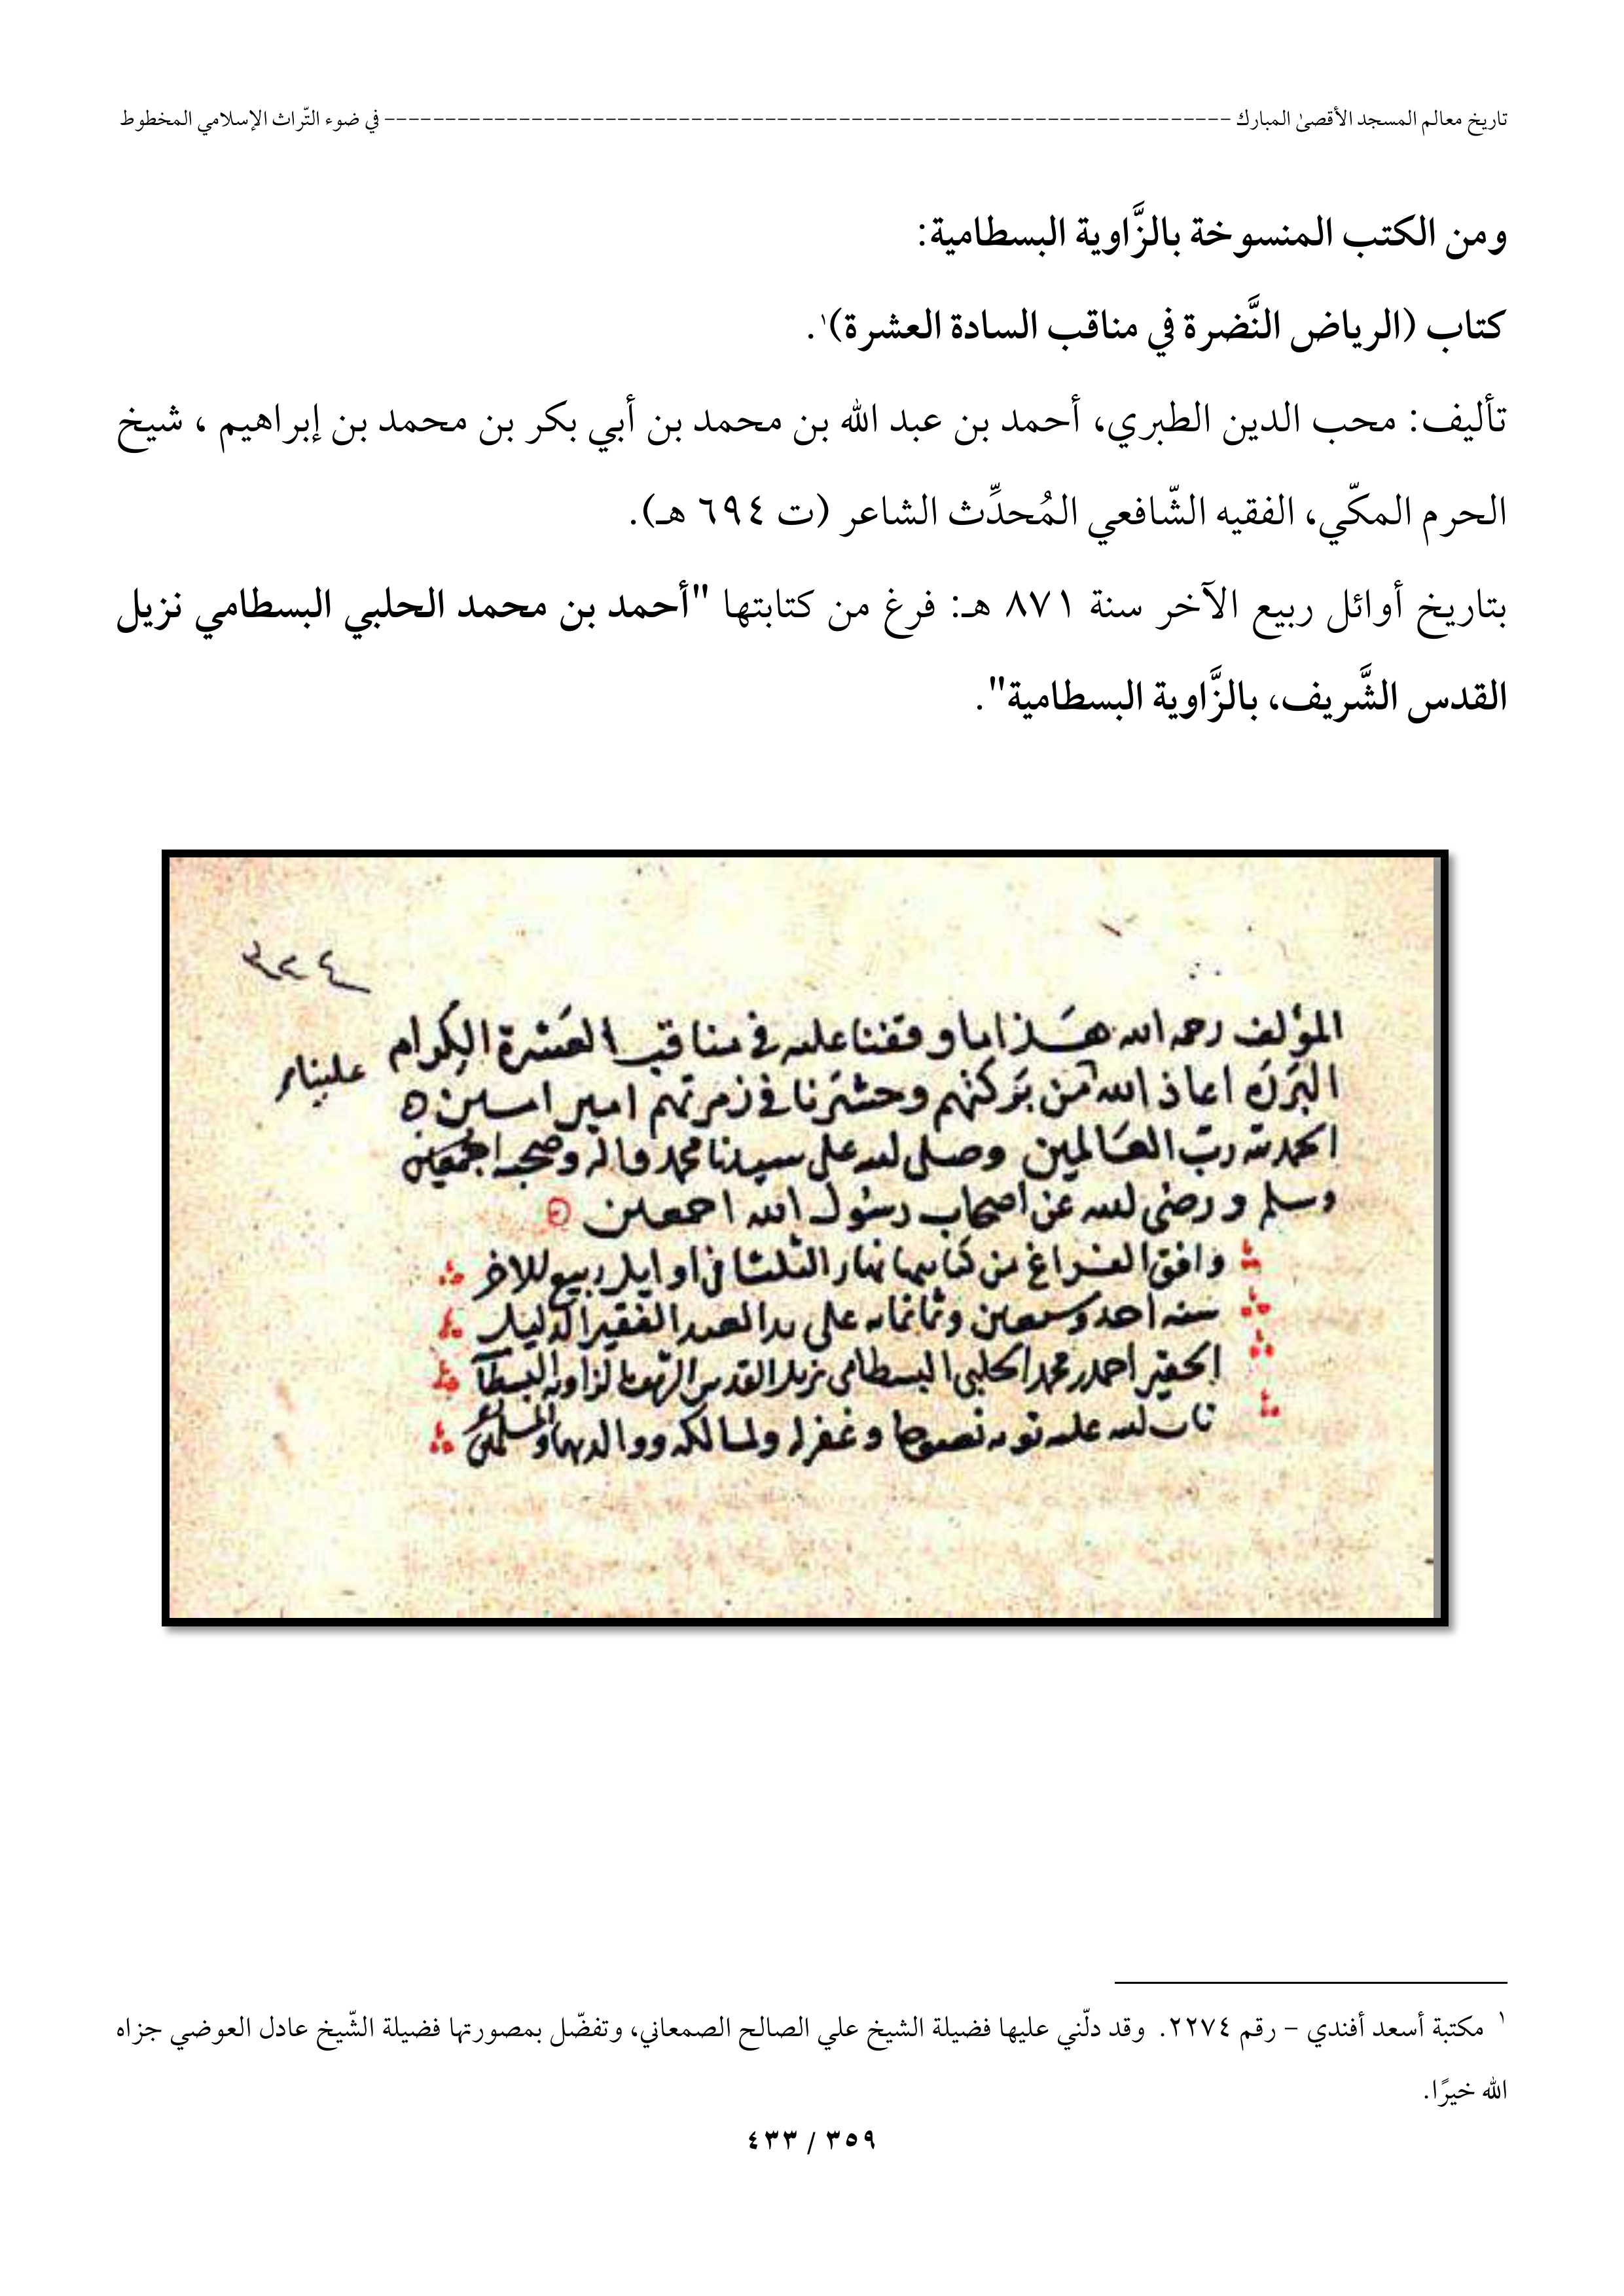 تاريخ معالم المسجد الأقصىٰ المبارك ---------------------------------------------------------------------- في ضوء التّراث الإسلامي المخطوط
ومن الكتب المنسوخة بالزَّاوية البسطامية:
كتاب (الرياض النَّضرة في مناقب السادة العشرة)١.
تأليف: محب الدين الطبري، أحمد بن عبد الله بن محمد بن أبي بكر بن محمد بن إبراهيم ، شيخ
الحرم المكّي، الفقيه الشّافعي المُحدِّث الشاعر (ت ٦٩٤ هـ).
بتاريخ أوائل ربيع الآخر سنة ٨٧١ هـ: فرغ من كتابتها "أحمد بن محمد الحلبي البسطامي نزيل
القدس الشَّريف، بالزَّاوية البسطامية".
المؤلف رحمه الله هذا ما وقفنا عليه في مناقب العشرة الكرام
البررة اعاذ الله من بركتهم وحشرنا في زمرتهم امين امين
الحمد لله رب العالمين وصلى الله على سيدنا محمد واله وصحبه اجمعين
وسلم ورضى الله عن اصحاب رسول الله اجمعين
وافق الفراغ من كتابتها نهار الثلثا في اوايل ربيع الاخر
سنه احد وسبعين وثمانمايه على يد العبد الفقير الذليل
الحقير احمد بن محمد الحلبي البسطامي نزيل القدس الشريف بالزاويه
تاب الله عليه توبه نصوحا وغفر له ولمالكه ووالديهما والمسلمين
١ مكتبة أسعد أفندي – رقم ٢٢٧٤. وقد دلّني عليها فضيلة الشيخ علي الصالح الصمعاني، وتفضّل بمصورتها فضيلة الشّيخ عادل العوضي جزاه
الله خيرًا.
٣٥٩ / ٤٣٣